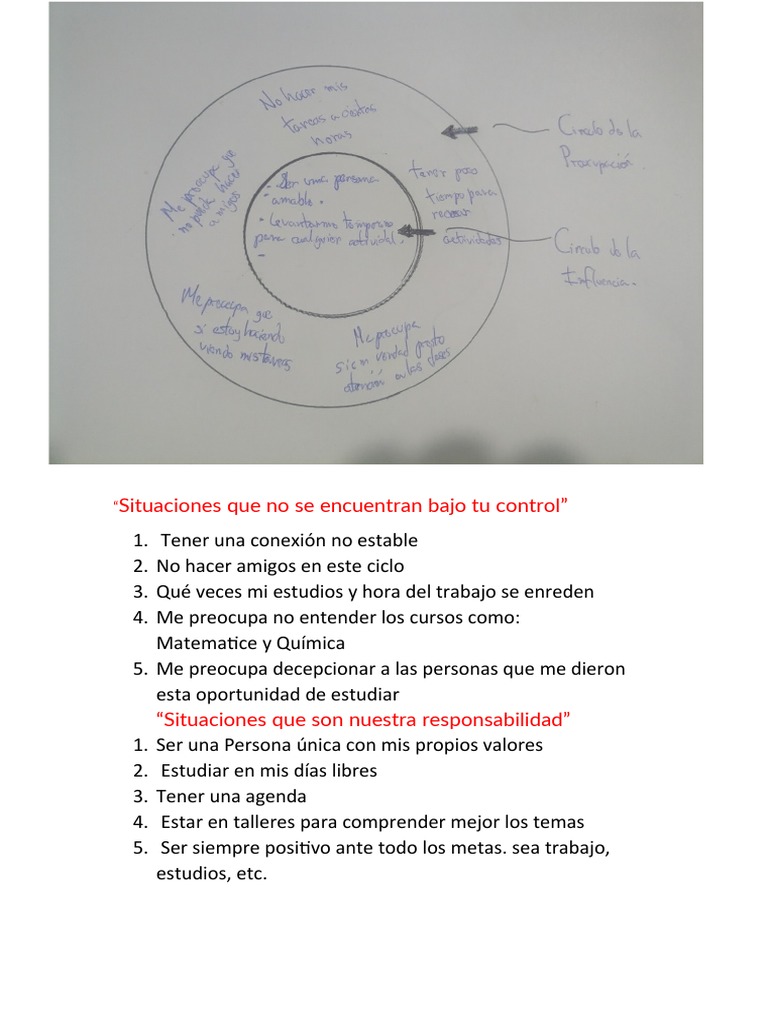 No hacer mis
tareas a ciertas
horas
Me preocupa que
no pueda hacer
a migos
Ser una persona
amable.
Levantarme temprano
para cualquier actividad.
tener poco
tiempo para
actividades
Circulo de la
Preocupación
Circulo de la
Influencia.
Me preocupa que
si estoy haciendo
viendo mis tareas
Me preocupa
si en verdad presto
atención en las clases
“Situaciones que no se encuentran bajo tu control”
1. Tener una conexión no estable
2. No hacer amigos en este ciclo
3. Qué veces mi estudios y hora del trabajo se enreden
4. Me preocupa no entender los cursos como:
Matematice y Química
5. Me preocupa decepcionar a las personas que me dieron
esta oportunidad de estudiar
“Situaciones que son nuestra responsabilidad”
1. Ser una Persona única con mis propios valores
2. Estudiar en mis días libres
3. Tener una agenda
4. Estar en talleres para comprender mejor los temas
5. Ser siempre positivo ante todo los metas. sea trabajo,
estudios, etc.